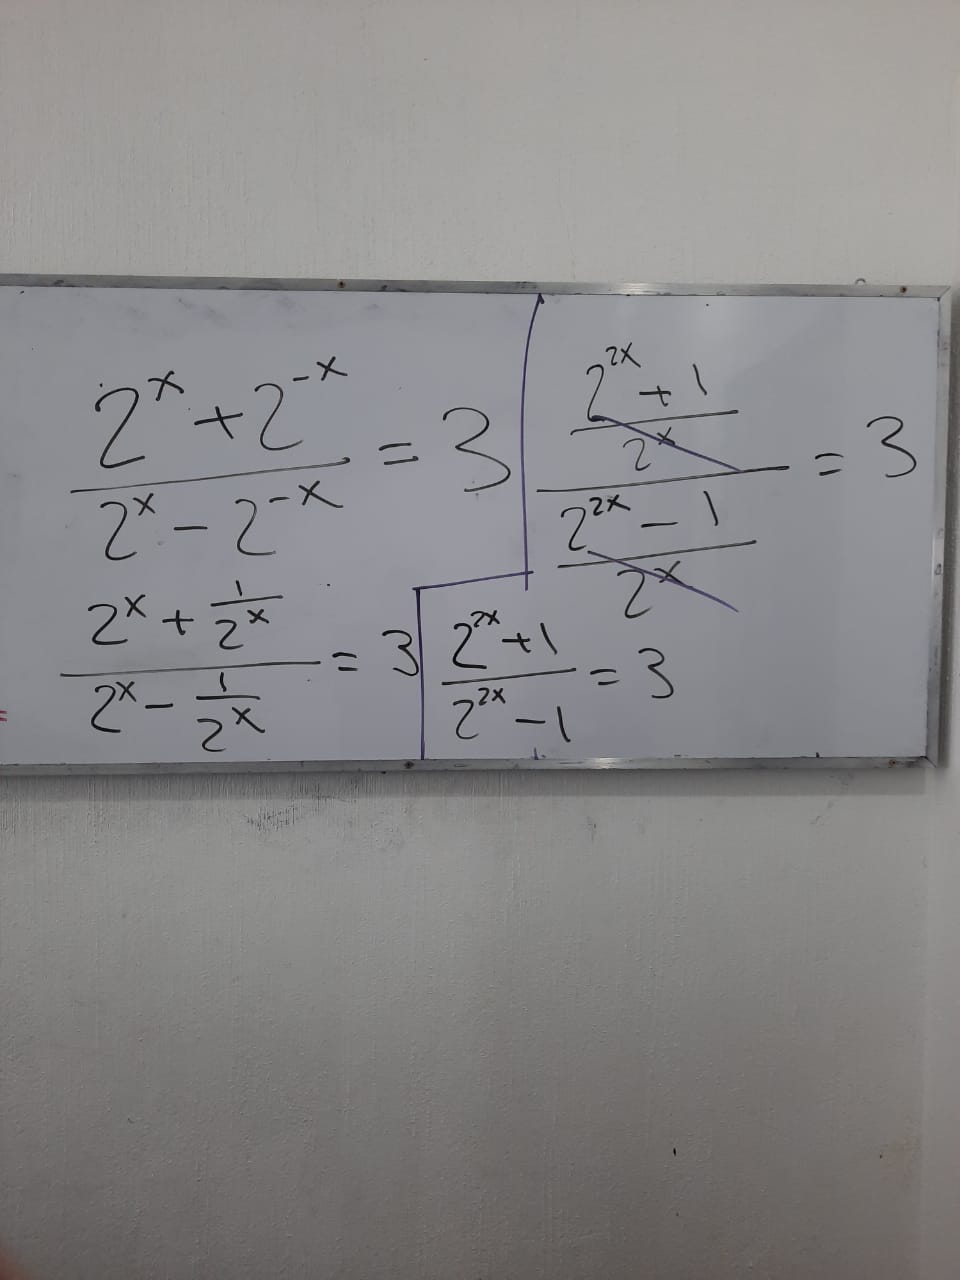 (2^x + 2^-x) / (2^x - 2^-x) = 3
(2^x + 1/2^x) / (2^x - 1/2^x) = 3
((2^2x + 1) / 2^x) / ((2^2x - 1) / 2^x) = 3
(2^2x + 1) / (2^2x - 1) = 3